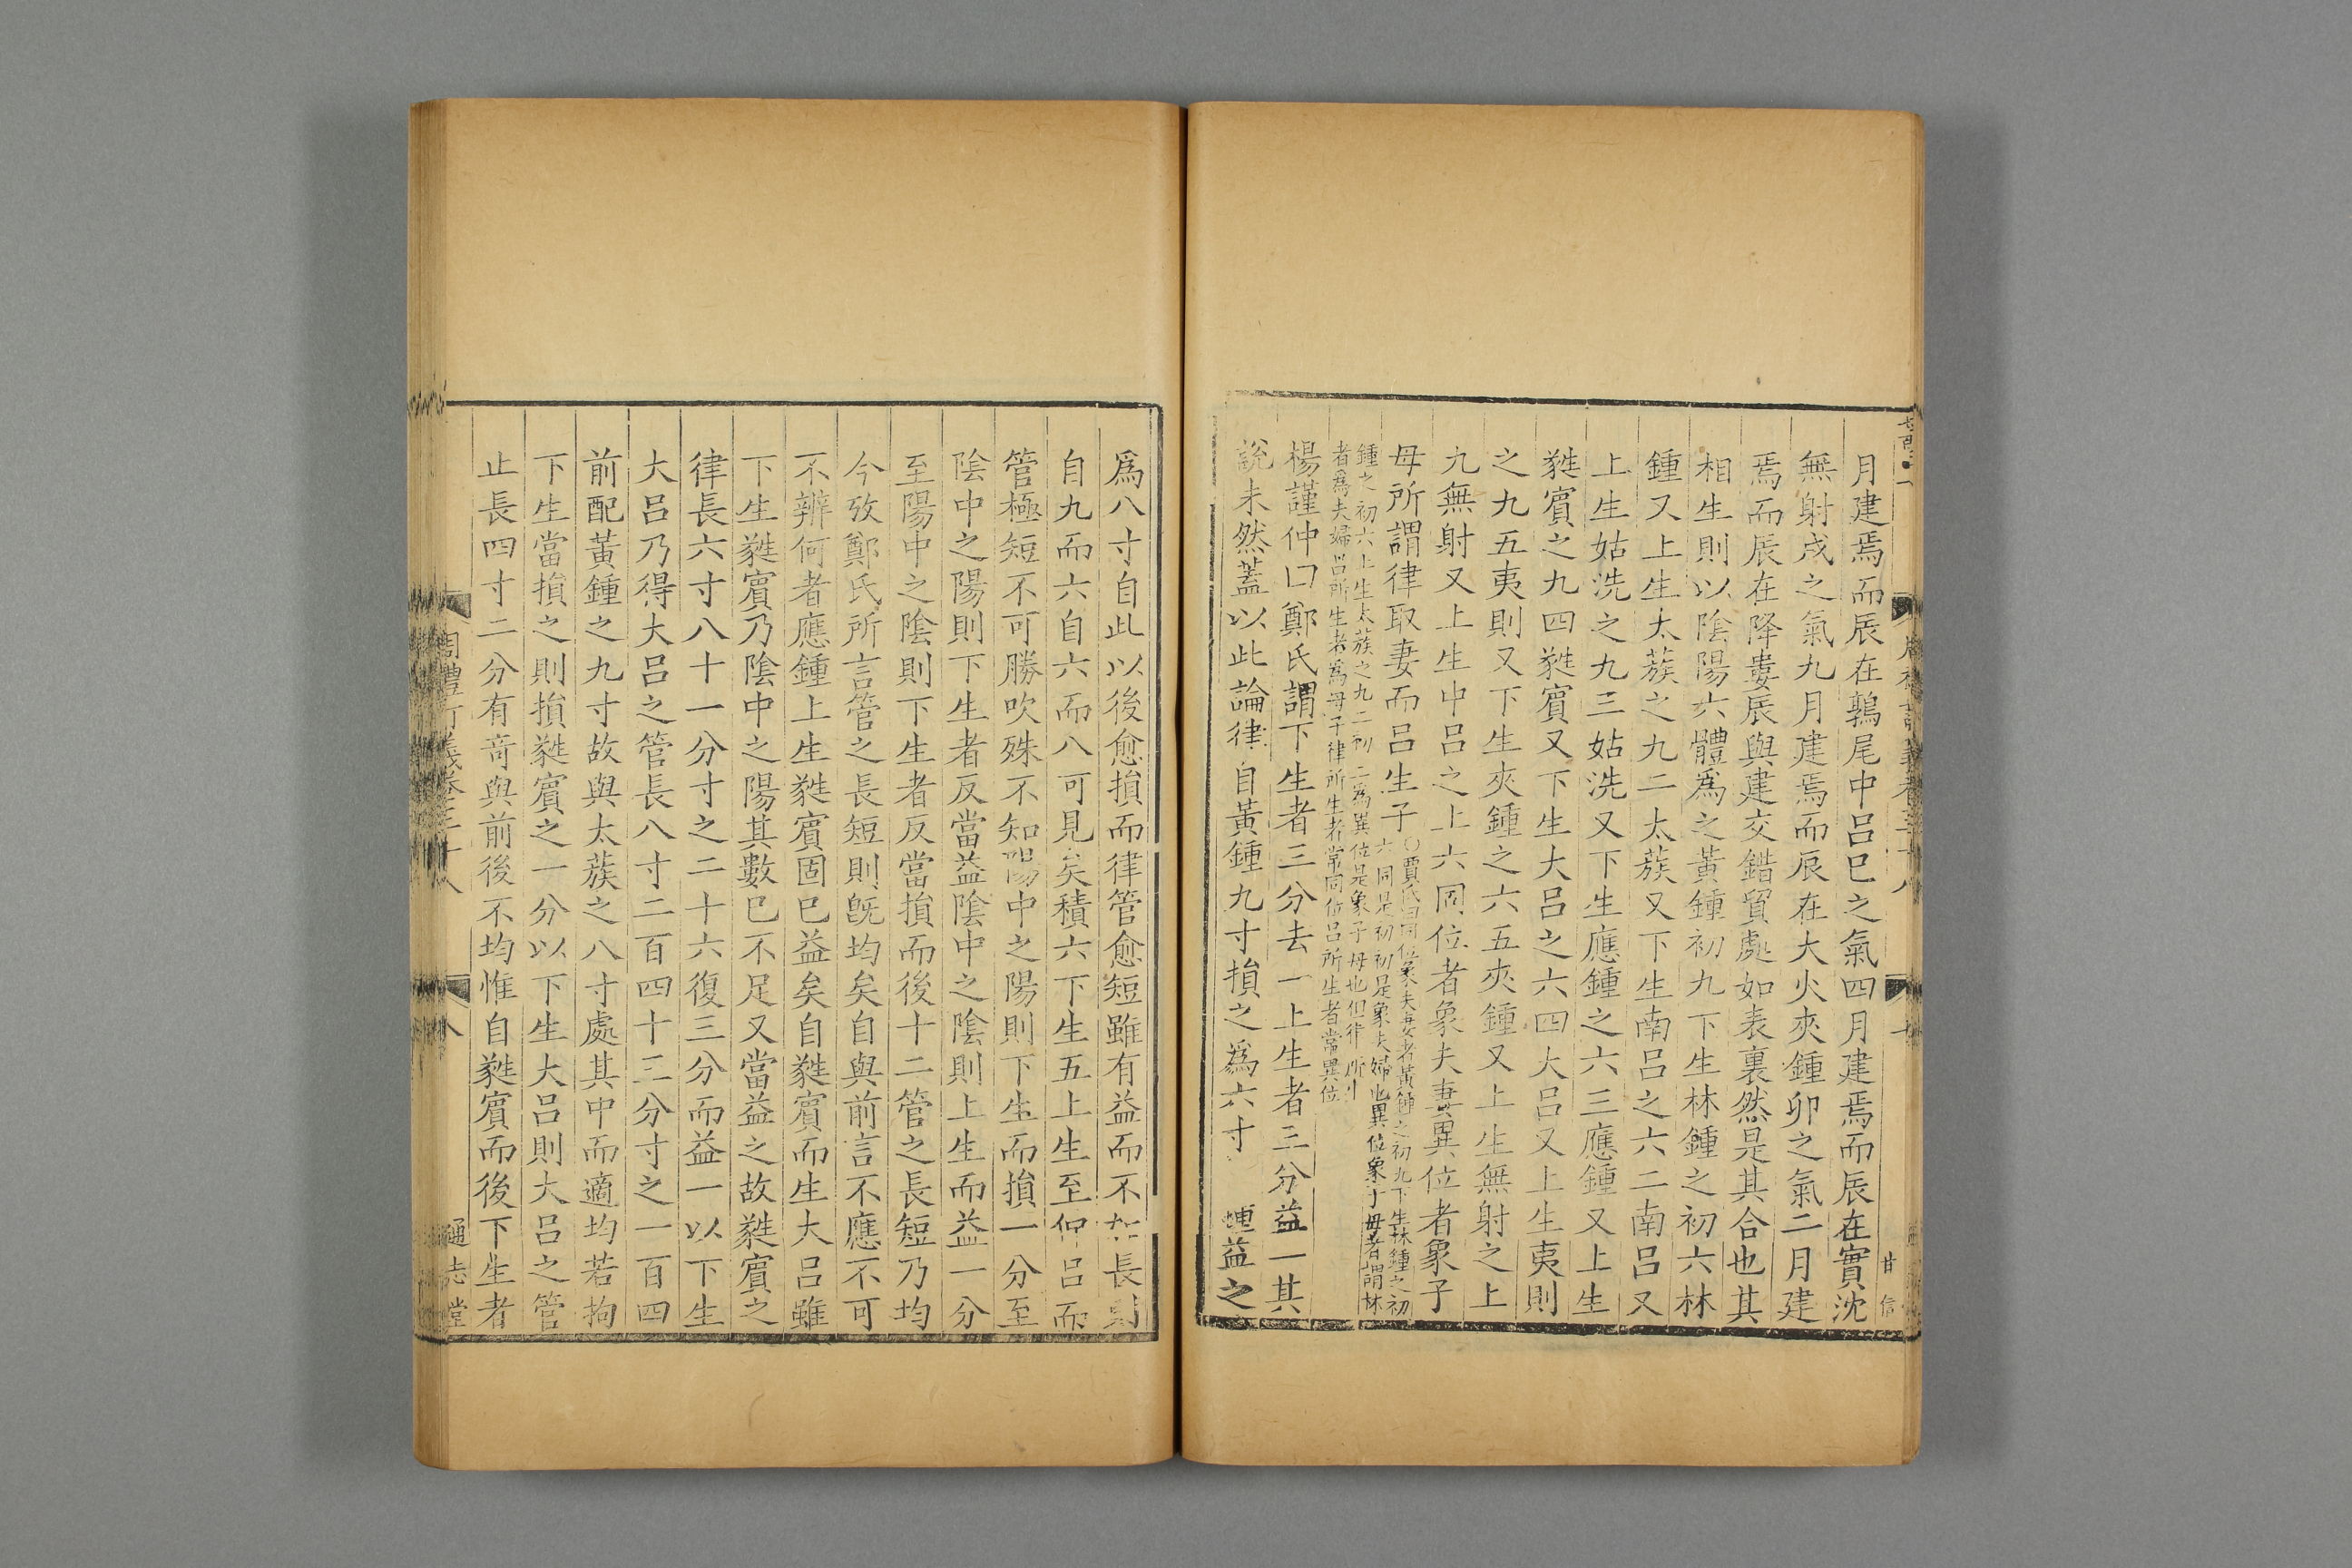 月建焉而辰在鶉尾中呂巳之氣四月建焉而辰在實沈
無射戌之氣九月建焉而辰在大火夾鍾卯之氣二月建
焉而辰在降婁辰與建交錯貿處如表裏然是其合也其
相生則以陰陽六體爲之黃鍾初九下生林鍾之初六林
鍾又上生太蔟之九二太蔟又下生南呂之六二南呂又
上生姑洗之九三姑洗又下生應鍾之六三應鍾又上生
蕤賓之九四蕤賓又下生大呂之六四大呂又上生夷則
之九五夷則又下生夾鍾之六五夾鍾又上生無射之上
九無射又上生中呂之上六同位者象夫妻異位者象子
母所謂律取妻而呂生子
〇賈氏曰同位象夫妻者黃鍾之初九下生林鍾之初
六同是初初是象夫婦也異位象子母者謂林
鍾之初六上生太蔟之九二初二爲異位是象子母也但律所生
者爲夫婦呂所生者爲母子律所生者常同位呂所生者常異位
楊謹仲曰鄭氏謂下生者三分去一上生者三分益一其
說未然蓋以此論律自黃鍾九寸損之爲六寸 益之
爲八寸自此以後愈損而律管愈短雖有益而不加長則
自九而六自六而八可見矣積六下生五上生至仲呂而
管極短不可勝吹殊不知陽中之陽則下生而損一分至
陰中之陽則下生者反當益陰中之陰則上生而益一分
至陽中之陰則下生者反當損而後十二管之長短乃均
今攷鄭氏所言管之長短則旣均矣自與前言不應不可
不辨何者應鍾上生蕤賓固巳益矣自蕤賓而生大呂雖
下生蕤賓乃陰中之陽其數巳不足又當益之故蕤賓之
律長六寸八十一分寸之二十六復三分而益一以下生
大呂乃得大呂之管長八寸二百四十三分寸之一百四
前配黃鍾之九寸故與太蔟之八寸處其中而適均若拘
下生當損之則損蕤賓之一分以下生大呂則大呂之管
止長四寸二分有奇與前後不均惟自蕤賓而後下生者
八
通志堂